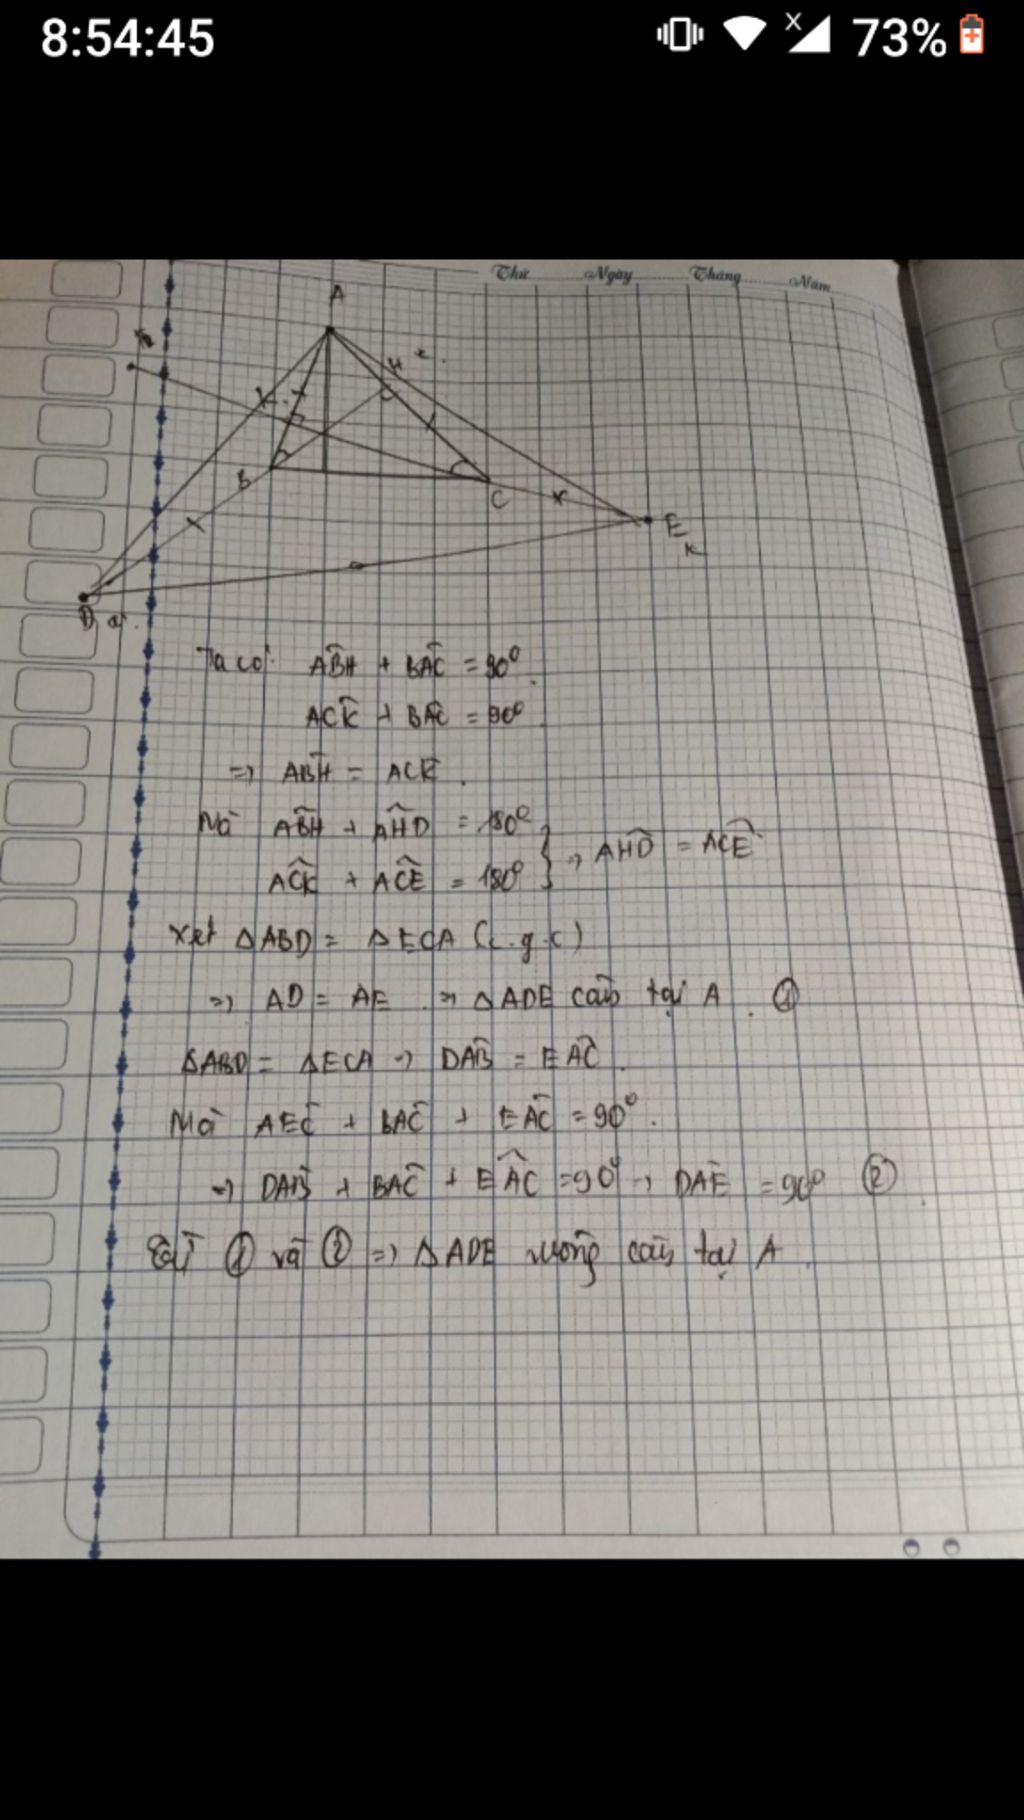 8:54:45 73%
Thứ Ngày Tháng Năm
A
H
B
C
E
K
D
Ta có: ABH + BAC = 90°
ACK + BAC = 90°
=> ABH = ACK.
Mà ABH + AHD = 180°
ACK + ACE = 180° } => AHD = ACE
Xét ΔABD = ΔECA (c.g.c)
=> AD = AE => ΔADE cân tại A. ①
ΔABD = ΔECA => DAB = EAC.
Mà AEC + BAC + EAC = 90°.
=> DAB + BAC + EAC = 90° => DAE = 90° ②
① và ② => ΔADE vuông cân tại A.